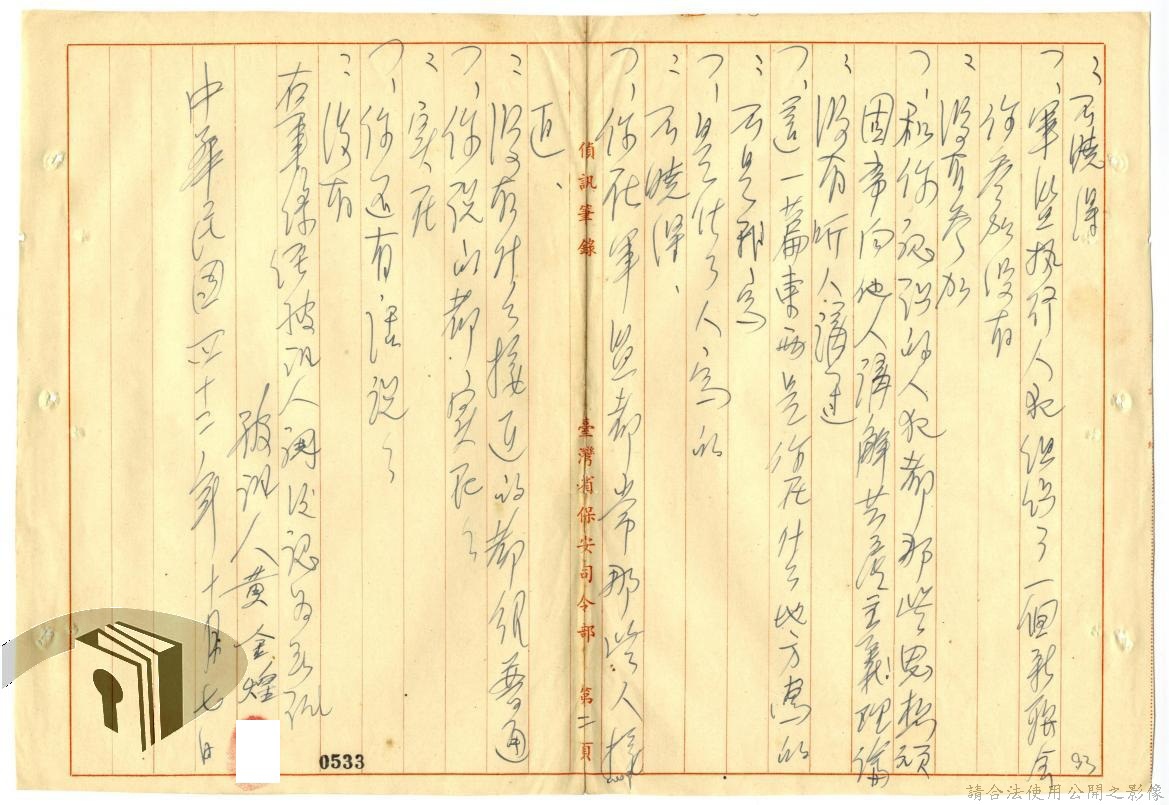 ：不曉得
問、軍監執行人犯組織了一個新聯会
你参加没有
：没有参加
問、和你認識的人犯都那些思想頑
固常向他人講解共産主義理論
：没有听人講过
問、這一篇東西是你在什么地方寫的
：不是我寫
問、是什么人寫的
：不曉得、
問、你在軍監都常那些人接
近、
：没有什么接近的都很普通
問、你説的都實在么
：實在
問、你还有話説么
：没有
右筆錄経被訊人閲後認為無訛
被訊人黄金煌
中華民國四十二年十月七日
偵訊筆錄
臺灣省保安司令部
第二頁
0533
93
請合法使用公開之影像